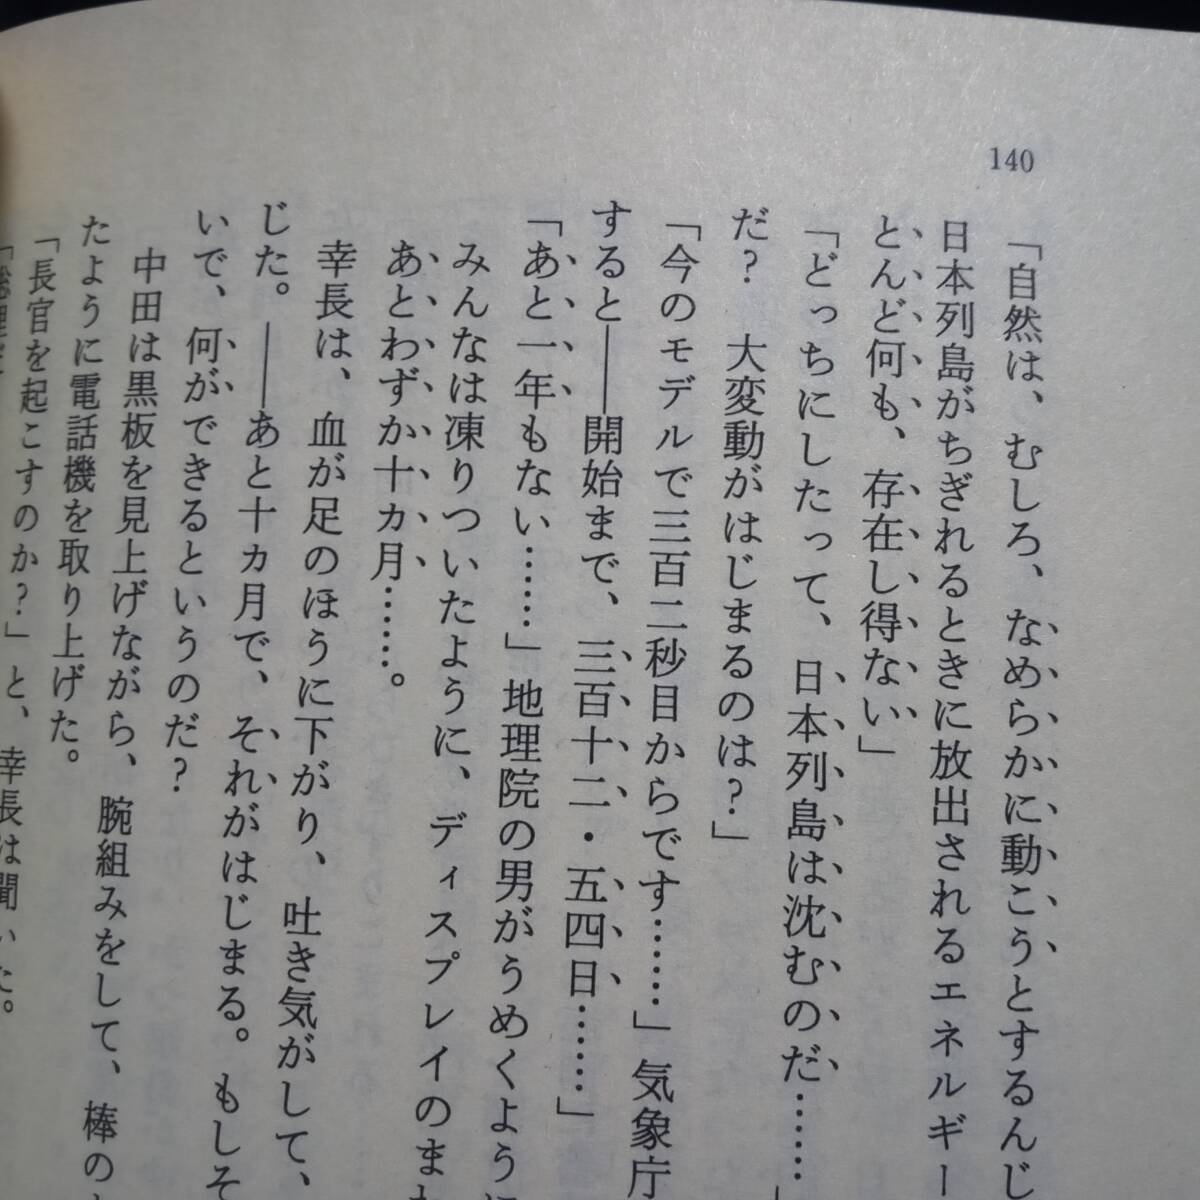 140
「自然は、むしろ、なめらかに動こうとするんじ
日本列島がちぎれるときに放出されるエネルギー
とんど何も、存在し得ない」
「どっちにしたって、日本列島は沈むのだ……
だ？　大変動がはじまるのは？」
「今のモデルで三百二秒目からです……」気象庁
すると――開始まで、三百十二・五四日……」
「あと一年もない……」地理院の男がうめくように
みんなは凍りついたように、ディスプレイのまわ
あとわずか十カ月……。
幸長は、血が足のほうに下がり、吐き気がして、
じた。――あと十カ月で、それがはじまる。もしそ
いで、何ができるというのだ？
中田は黒板を見上げながら、腕組みをして、棒の
たように電話機を取り上げた。
「長官を起こすのか？」と、幸長は聞いた。
「総理だ